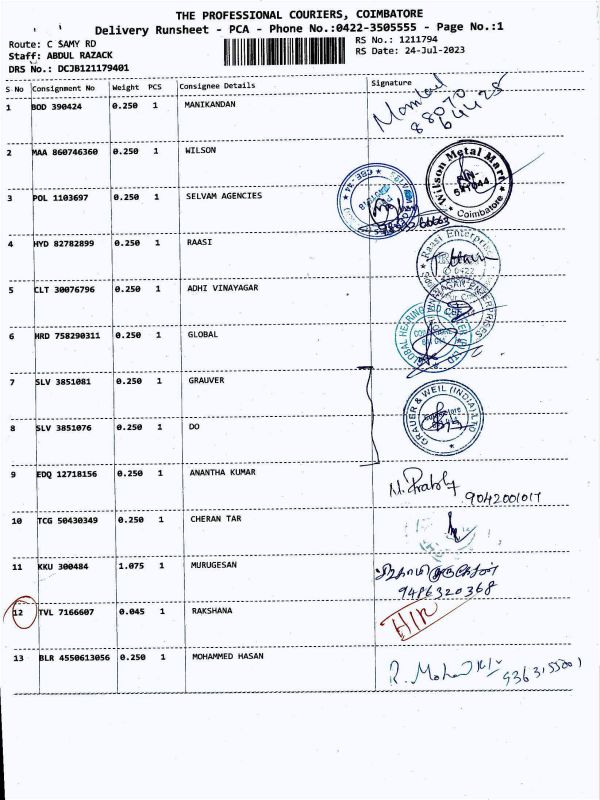 THE PROFESSIONAL COURIERS, COIMBATORE
Delivery Runsheet - PCA - Phone No.:0422-3505555 - Page No.:1
Route: C SAMY RD
RS No.: 1211794
Staff: ABDUL RAZACK
RS Date: 24-Jul-2023
DRS No.: DCJB121179401
S No Consignment No Weight PCS Consignee Details Signature
1 BOD 390424 0.250 1 MANIKANDAN
88070
64425
2 MAA 860746360 0.250 1 WILSON
Wilson Metal Mart
Coimbatore
3 POL 1103697 0.250 1 SELVAM AGENCIES
4 HYD 82782899 0.250 1 RAASI
Raasi Enterprises
0422
5 CLT 30076796 0.250 1 ADHI VINAYAGAR
6 HRD 758290311 0.250 1 GLOBAL
GLOBAL HEARING AID
7 SLV 3851081 0.250 1 GRAUVER
GRAUER & WEIL (INDIA) LTD
8 SLV 3851076 0.250 1 DO
9 EDQ 12718156 0.250 1 ANANTHA KUMAR
9042001017
10 TCG 50430349 0.250 1 CHERAN TAR
11 KKU 300484 1.075 1 MURUGESAN
9486320368
12 TVL 7166607 0.045 1 RAKSHANA
HIR
13 BLR 4550613056 0.250 1 MOHAMMED HASAN